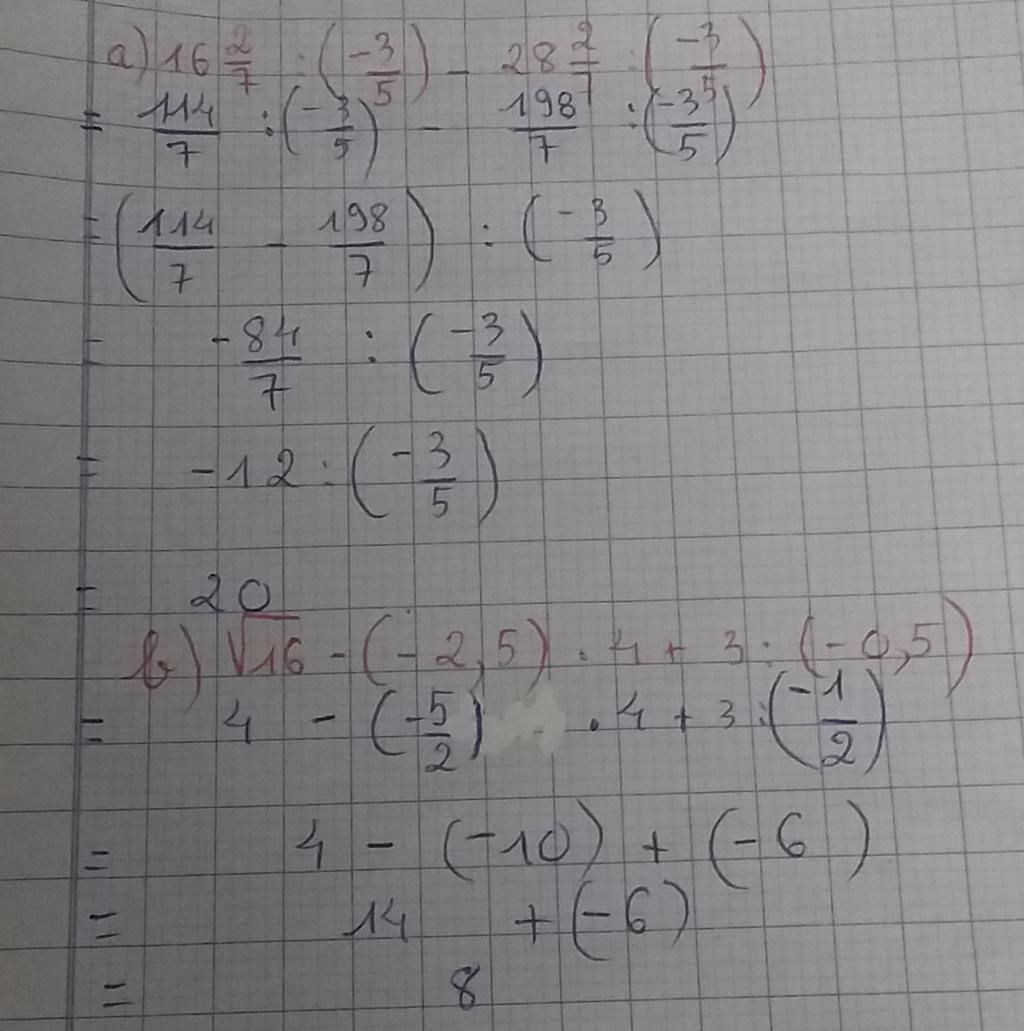 a) 16 2/7 : (-3/5) - 28 2/7 : (-3/5)
= 114/7 : (-3/5) - 198/7 : (-3/5)
= (114/7 - 198/7) : (-3/5)
= -84/7 : (-3/5)
= -12 : (-3/5)
= 20
b) √16 - (-2,5) . 4 + 3 : (-0,5)
= 4 - (-5/2) . 4 + 3 : (-1/2)
= 4 - (-10) + (-6)
= 14 + (-6)
= 8